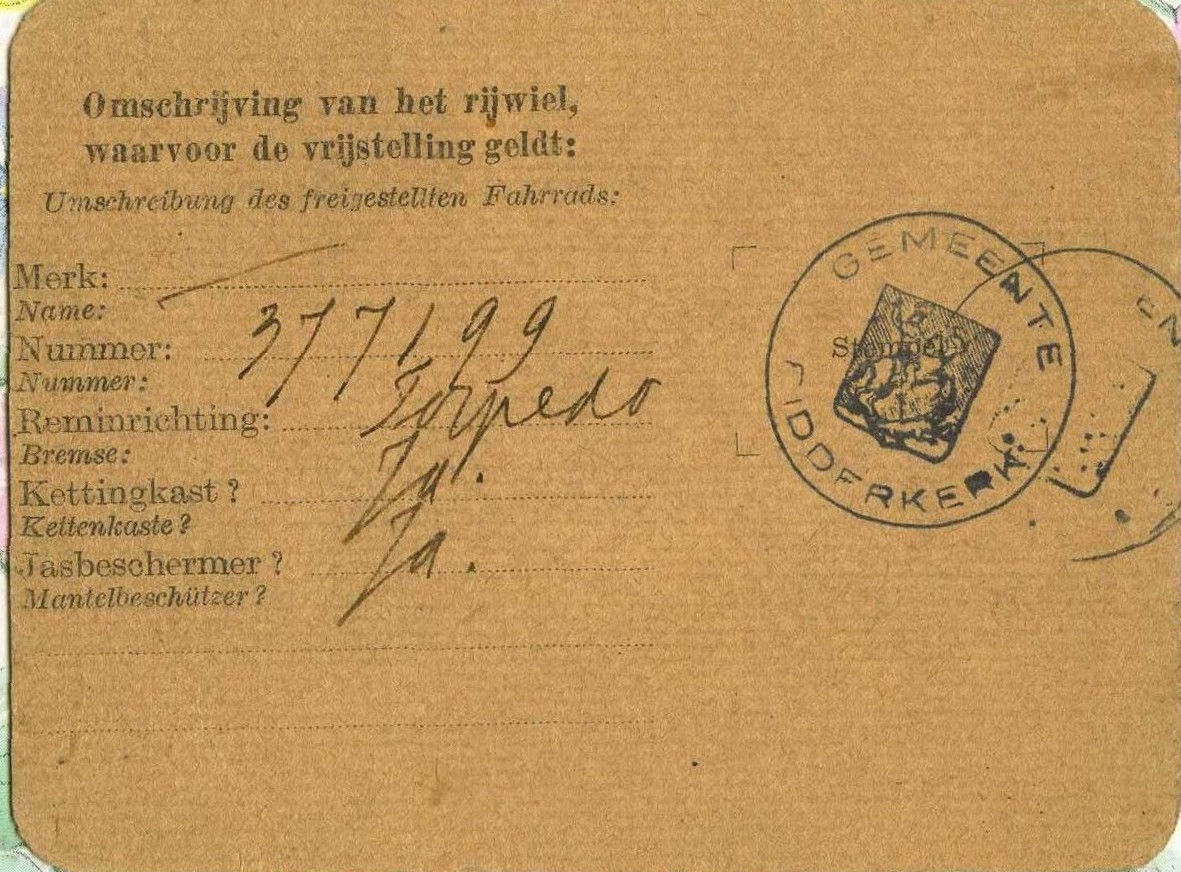 Omschrijving van het rijwiel,
waarvoor de vrijstelling geldt:
Umschreibung des freigestellten Fahrrads:
Merk:
Name:
Nummer: 377199
Nummer:
Reminrichting: Torpedo
Bremse:
Kettingkast? Ja.
Kettenkaste?
Jasbeschermer? Ja.
Mantelbeschützer?
GEMEENTE
Stempel
RIDDERKERK.
EN